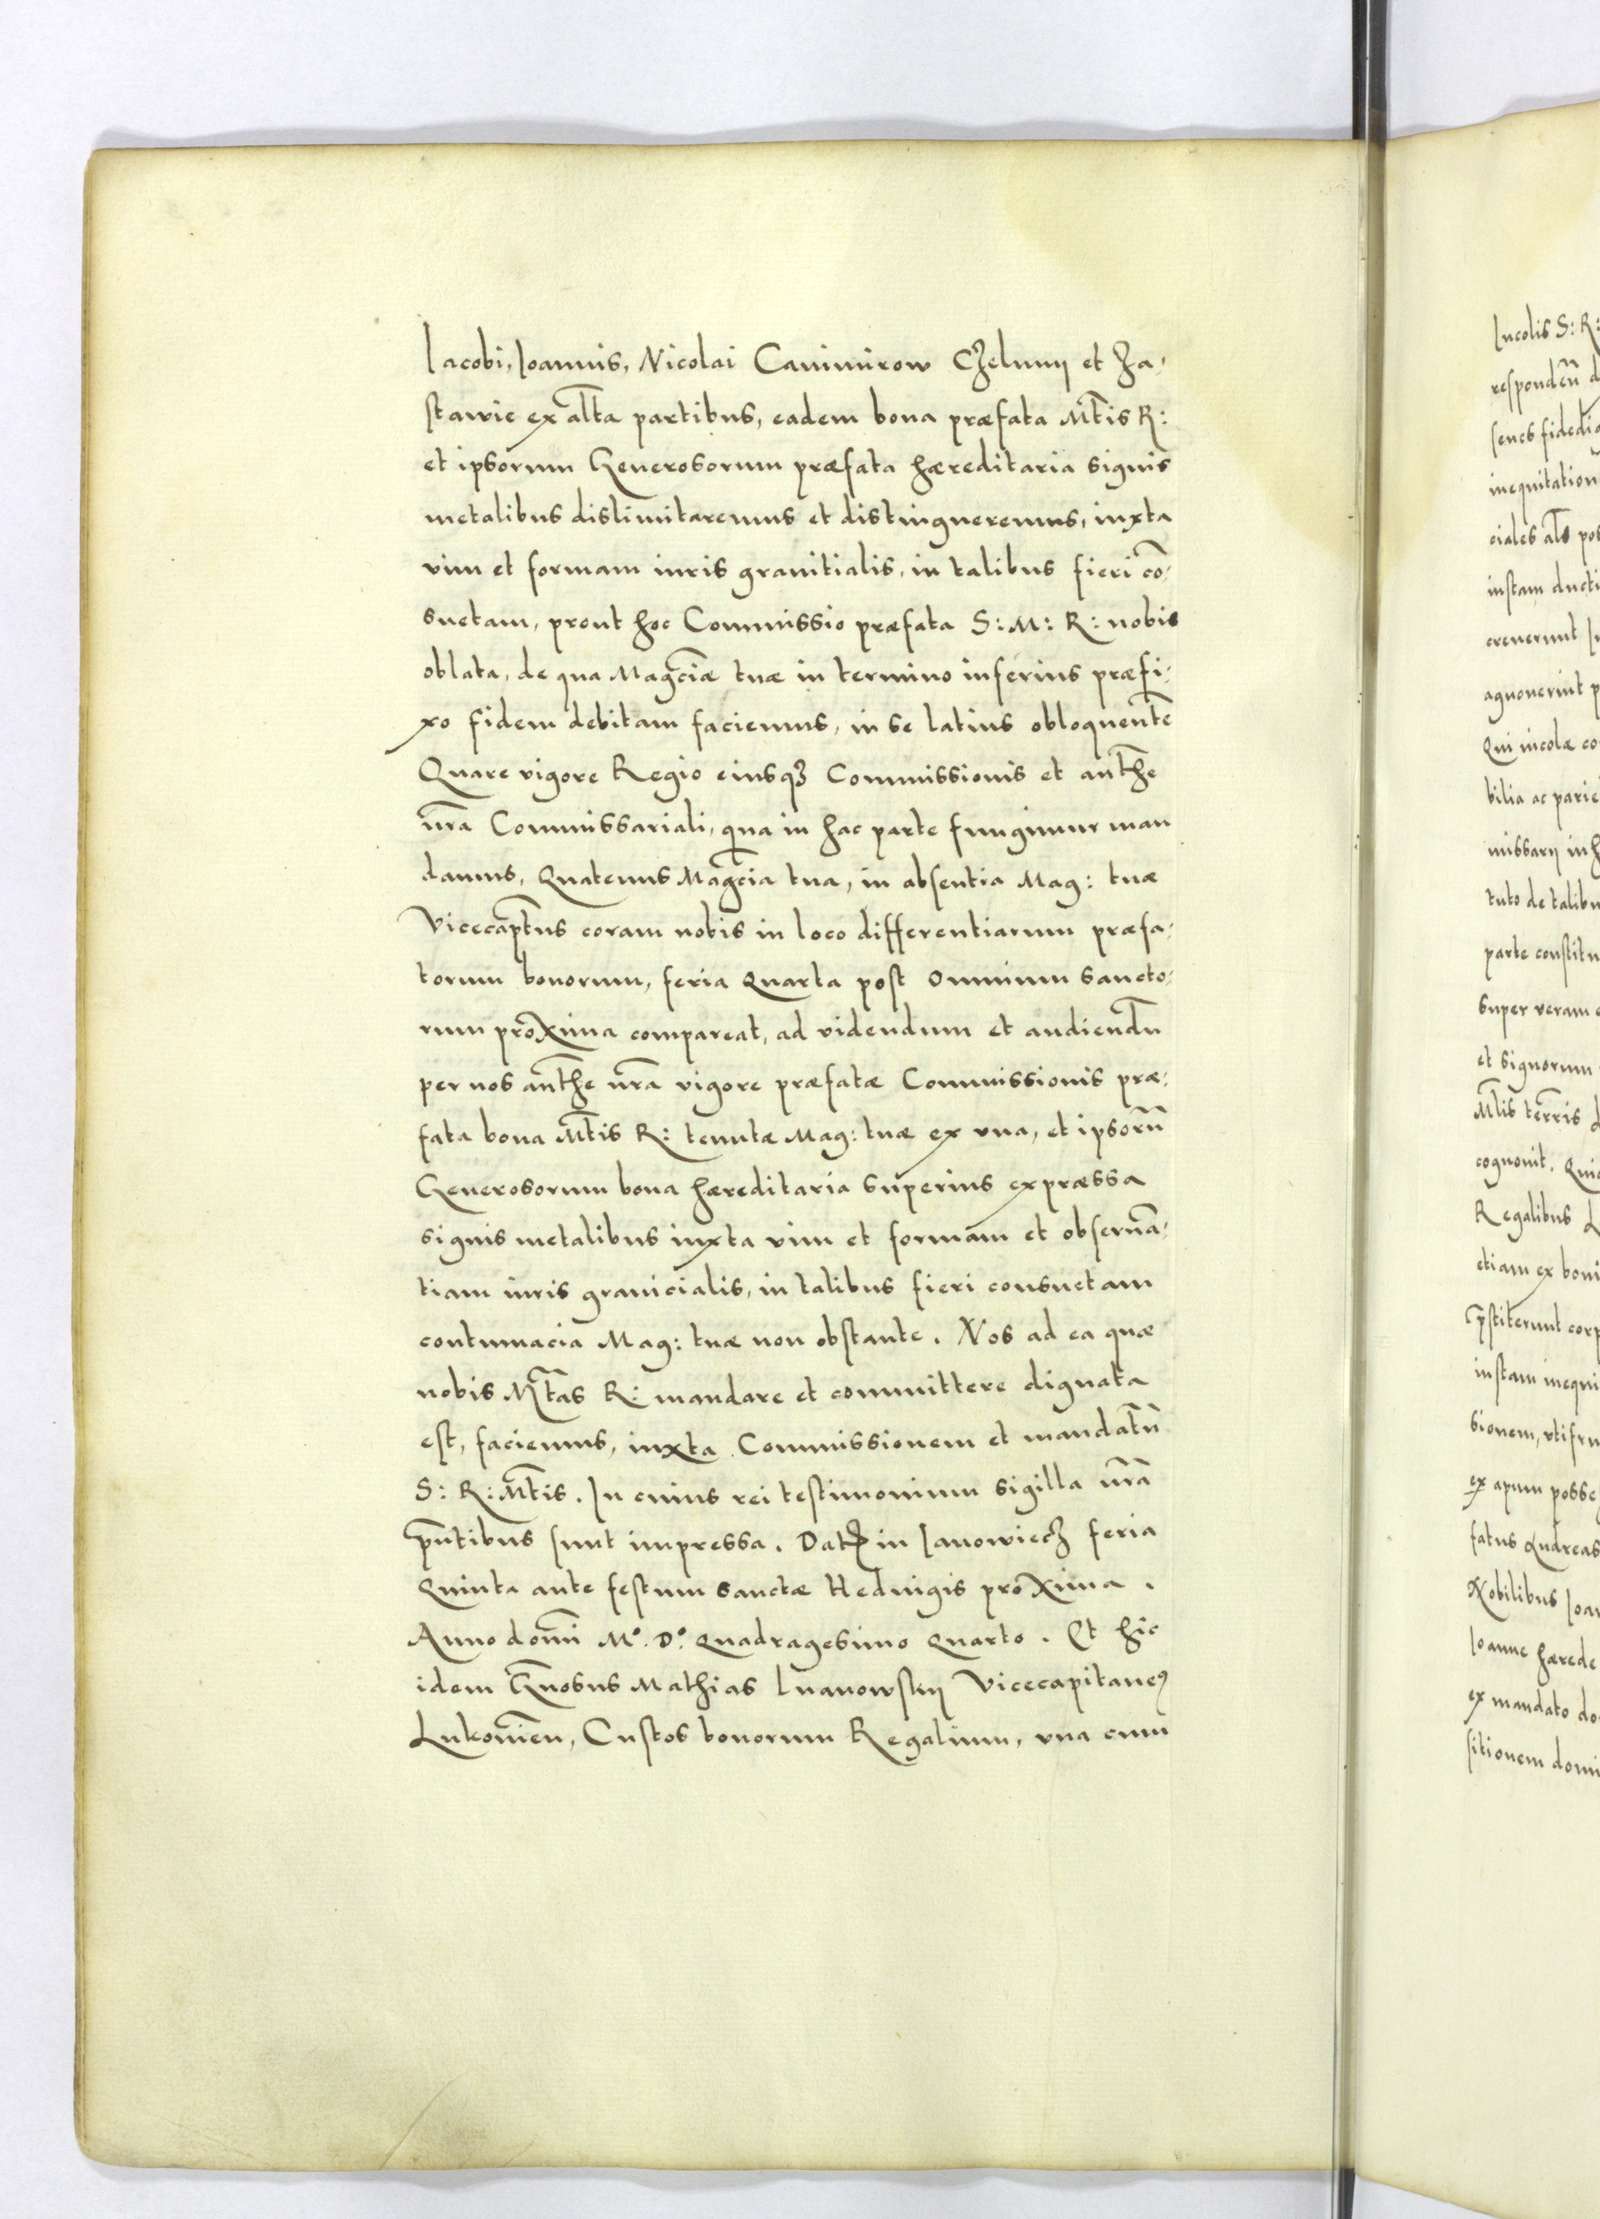 Iacobi, Ioannis, Nicolai Caninirow Czelunij et Za-
stawie ex alt̃a partibus, eadem bona præfata Mt̃is R:
et ipsorum Generosorum præfata hæreditaria signis
metalibus dislimitaremus et distingueremus, iuxta
vim et formam iuris granitialis, in talibus fieri cõ-
suetam, prout hoc Commissio præfata S: M: R: nobis
oblata, de qua Magc̃iæ tuæ in termino inferius præfi-
xo fidem debitam faciemus, in se latius obloquent̃e
Quare vigore Regio eiusqȝ Commissionis et aut̃he
nr̃a Commissariali, qua in hac parte fungimur man
damus, Quatenus Magc̃ia tua, in absentia Mag: tuæ
Vicecapt̃us coram nobis in loco differentiarum præfa-
torum bonorum, feria Quarta post Omnium Sancto-
rum proxima compareat, ad videndum et audiend̃u
per nos aut̃he nr̃a vigore præfatæ Commissionis præ-
fata bona Mt̃is R: tenutæ Mag: tuæ ex vna, et ipsorũ
Generosorum bona hæreditaria superius expræssa
signis metalibus iuxta vim et formam et obseruã-
tiam iuris granicialis, in talibus fieri consuetam
contumacia Mag: tuæ non obstante. Nos ad ea quæ
nobis Mt̃as R: mandare et committere dignata
est, faciemus, iuxta Commissionem et mandatũ
S: R: Mt̃is. In cuius rei testimonium sigilla nr̃a
pñtibus sunt impressa. Datꝝ in Ianowiecz feria
Quinta ante festum sanctæ Heduigis proxima.
Anno domĩ Mº. Dº. Quadragesimo Quarto. Et hic
idem Gñosus Mathias Iuanowskij Vicecapitaneꝰ
Lukoviẽn, Custos bonorum Regalium, vna cum
Incolis S: R:
respondeñ d
inequitation
ciales al̃s pos
iustam ducti
creuerunt
agnouerint p
Qui incolæ co
bilia ac parie
missarij in h
tuto de talibu
parte constitu
super veram
et signorum
Mt̃is terris
cognouit. Qui
Regalibus
etiam ex boni
p̃stiterunt corp
iustam inequi
sionem, vtifru
ex apum posse
fatus Andreas
Nobilibus Ioan
Ioanne hærede
ex mandato do
sitionem domi